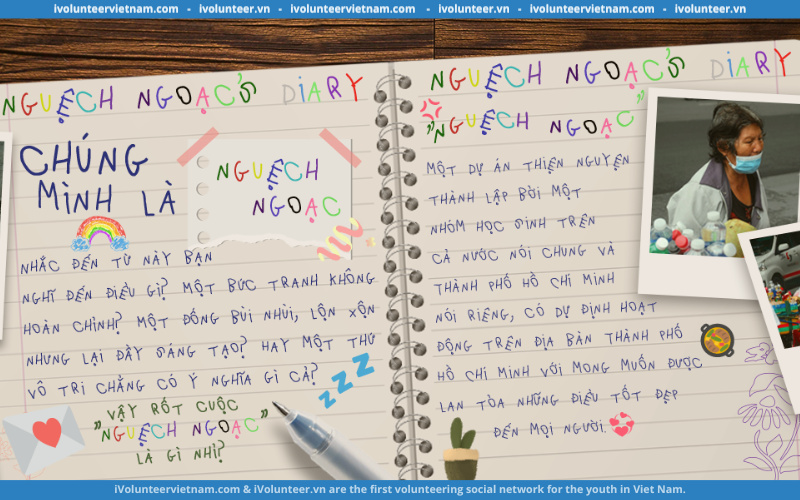 ivolunteervietnam.com - ivolunteer.vn - ivolunteervietnam.com - ivolunteer.vn - ivolunteervietnam.com - ivolunteer.vn
NGUỆCH NGOẠC'S DIARY
CHÚNG
MÌNH LÀ
NGUỆCH
NGOẠC
NHẮC ĐẾN TỪ NÀY BẠN
NGHĨ ĐẾN ĐIỀU GÌ? MỘT BỨC TRANH KHÔNG
HOÀN CHỈNH? MỘT ĐỐNG BÙI NHÙI, LỘN XỘN
NHƯNG LẠI ĐẦY SÁNG TẠO? HAY MỘT THỨ
VÔ TRI CHẲNG CÓ Ý NGHĨA GÌ CẢ?
ZZZ
VẬY RỐT CUỘC
"NGUỆCH NGOẠC"
LÀ GÌ NHỈ?
NGUỆCH NGOẠC'S DIARY
"NGUỆCH NGOẠC"
MỘT DỰ ÁN THIỆN NGUYỆN
THÀNH LẬP BỞI MỘT
NHÓM HỌC SINH TRÊN
CẢ NƯỚC NÓI CHUNG VÀ
THÀNH PHỐ HỒ CHÍ MINH
NÓI RIÊNG, CÓ DỰ ĐỊNH HOẠT
ĐỘNG TRÊN ĐỊA BÀN THÀNH PHỐ
HỒ CHÍ MINH VỚI MONG MUỐN ĐƯỢC
LAN TỎA NHỮNG ĐIỀU TỐT ĐẸP
ĐẾN MỌI NGƯỜI.
iVolunteervietnam.com & iVolunteer.vn are the first volunteering social network for the youth in Viet Nam.